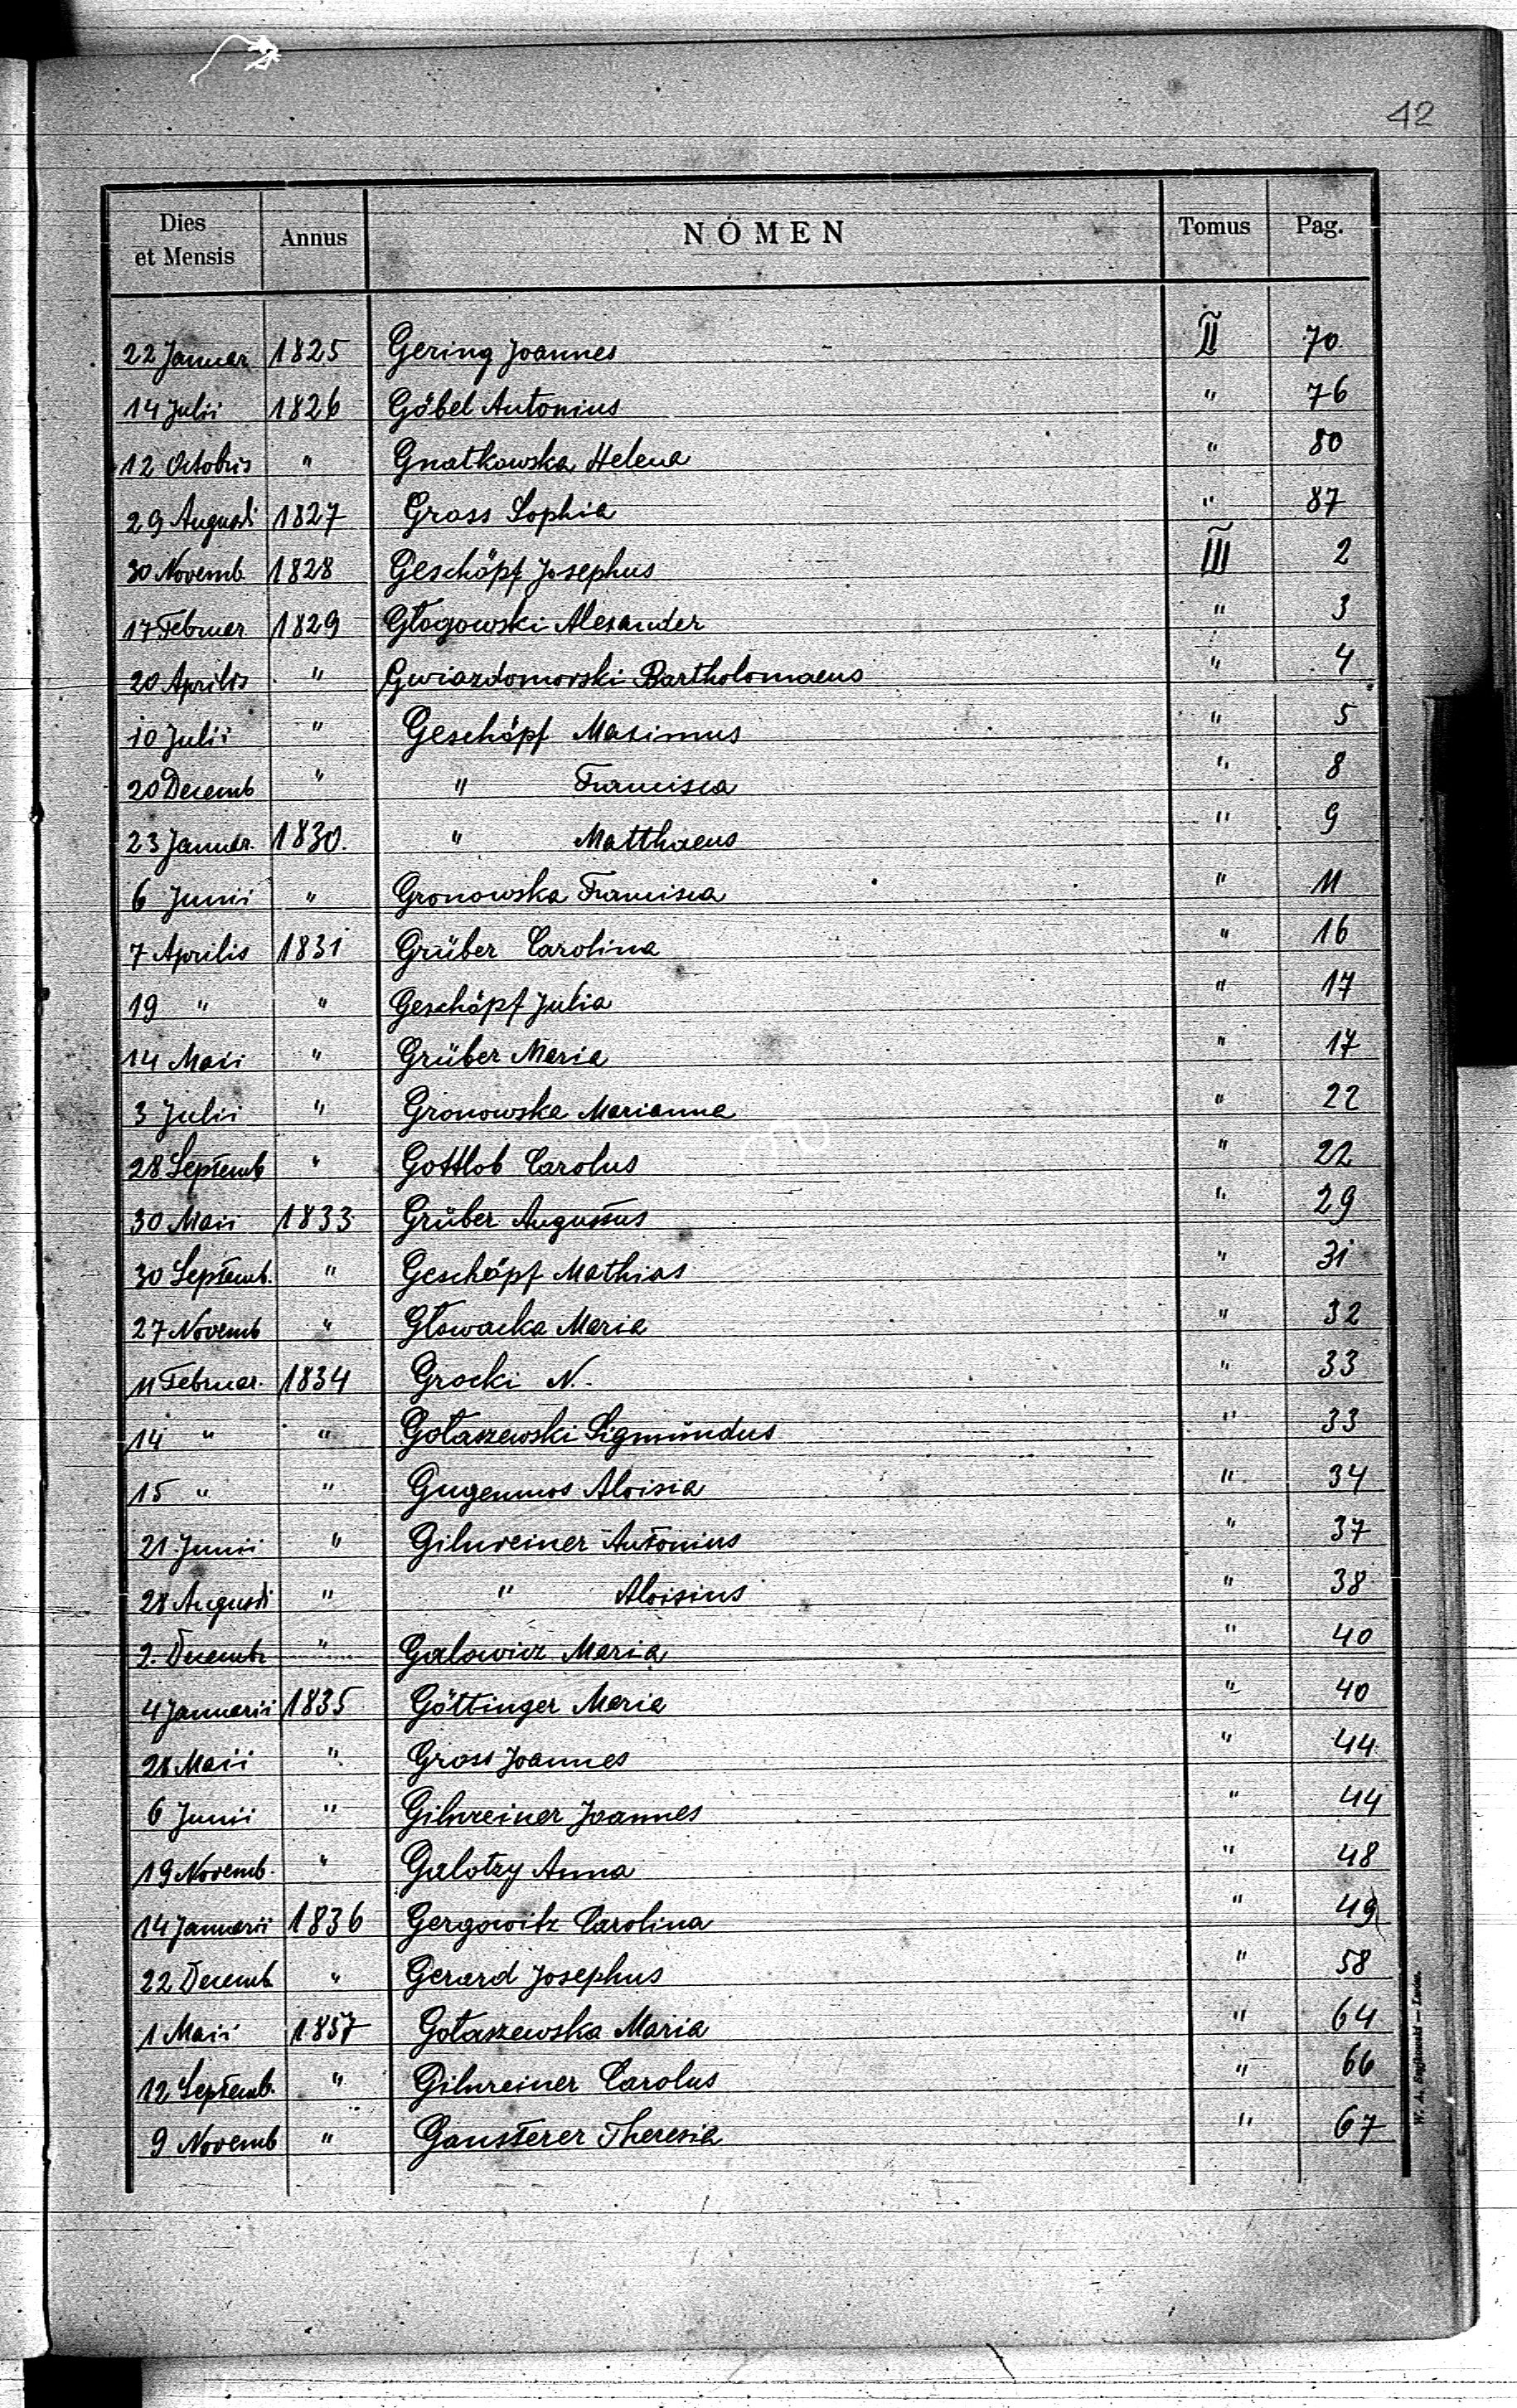 42
Dies et Mensis Annus NOMEN Tomus Pag.
22 Januar 1825 Gering Joannes II 70
14 Julii 1826 Göbel Antonius " 76
12 Octobris " Gnatkowska Helena " 80
29 Augusti 1827 Gross Sophia " 87
30 Novemb. 1828 Geschöpf Josephus III 2
17 Februar 1829 Głogowski Alexander " 3
20 Aprilis " Gwiazdomorski Bartholomaeus " 4
10 Julii " Geschöpf Maximus " 5
20 Decemb " " Francisca " 8
23 Januar. 1830. " Matthaeus " 9
6 Junii " Gronowska Francisca " 11
7 Aprilis 1831 Grüber Carolina " 16
19 " " Geschöpf Julia " 17
14 Maii " Grüber Maria " 17
3 Julii " Gronowska Marianna " 22
28 Septemb " Gottlob Carolus " 22
30 Maii 1833 Grüber Augustus " 29
30 Septemb. " Geschöpf Mathias " 31
27 Novemb " Głowacka Maria " 32
11 Februar. 1834 Grocki N. " 33
14 " " Gołaszewski Sigmundus " 33
15 " " Gugenmos Aloisia " 34
21 Junii " Gilnreiner Antonius " 37
28 Augusti " " Aloisius " 38
2. Decembr " Galowicz Maria " 40
4 Januarii 1835 Göttinger Maria " 40
28 Maii " Gross Joannes " 44
6 Junii " Gilnreiner Joannes " 44
19 Novemb. " Galotzy Anna " 48
14 Januarii 1836 Gergowitz Carolina " 49
22 Decemb. " Gerard Josephus " 58
1 Maii 1837 Gołaszewska Maria " 64
12 Septemb. " Gilnreiner Carolus " 66
9 Novemb " Gansterer Theresia " 67